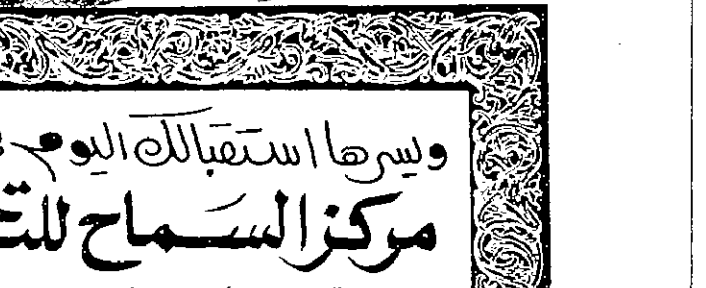 ويسرها استقبالك اليوم
مركز السماح